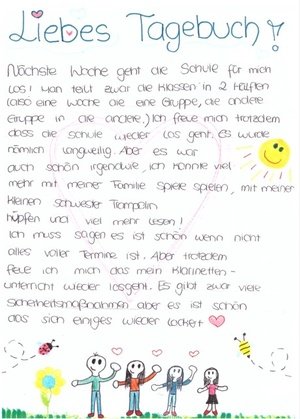 Liebes Tagebuch!
Nächste Woche geht die Schule für mich
los! Man teilt zwar die Klassen in 2 Hälften
(also eine Woche die eine Gruppe, die andere
Gruppe in die andere.) Ich freue mich trotzdem
dass die schule wieder los geht. Es wurde
nämlich langweilig. Aber es war
auch schön irgendwie, ich konnte viel
mehr mit meiner Familie Spiele spielen, mit meiner
kleinen schwester Trampolin
hüpfen und viel mehr lesen!
Ich muss sagen es ist schön wenn nicht
alles voller Termine ist. Aber trotzdem
feue ich mich das mein Klarinetten-
unterricht wieder losgeht. Es gibt zwar viele
Sicherheitsmaßnahmen aber es ist schön
das sich einiges wieder lockert